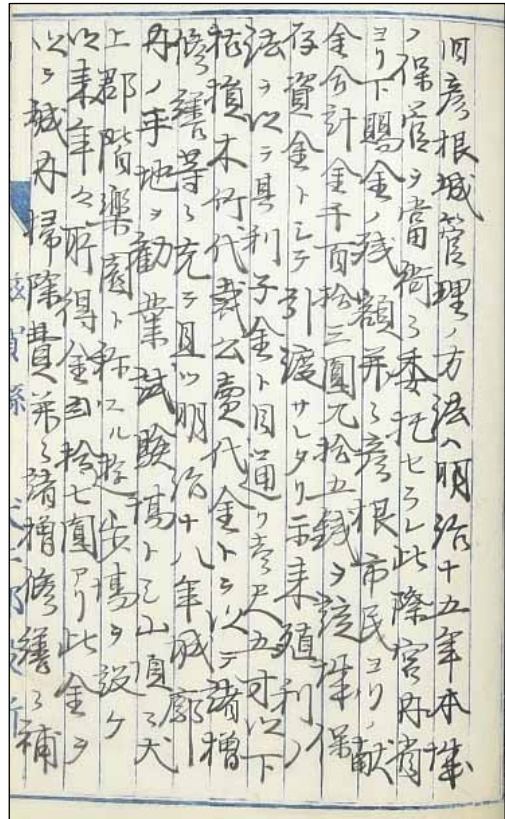 旧彦根城管理ノ方法ハ明治十五年本城
ノ保管ヲ當衙ヘ委托セラレ此際宮内省
ヨリ下賜金ノ残額并ニ彦根市民ヨリノ献
金合計金千百拾三圓九拾五銭ヲ該城保
存資金トシテ引渡サレタリ爾来殖利ノ
法ヲ以テ其利子金ト目通リ壱尺五寸以下
枯損木竹代裁公賣代金トヲ以テ諸櫓
修繕等ニ充テ且ツ明治十八年城廓
内ノ平地ヲ勧業試験場トシ山頂ニ犬
上郡偕樂園ト称スル遊歩場ヲ設ケ
以来年々所得金四拾七圓アリ此金ヲ
以テ城内掃除費并ニ諸櫓修繕ニ補
滋賀縣